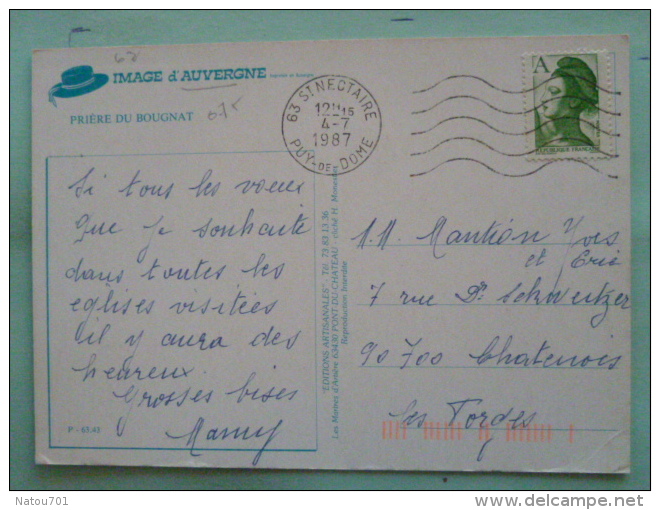 IMAGE d'AUVERGNE
PRIÈRE DU BOUGNAT
63 ST NECTAIRE
12H15
4-7
1987
PUY-DE-DOME
A
REPUBLIQUE FRANÇAISE
Si tous les voeux
que je souhaite
dans toutes les
églises visitées
il y aura des
heureux.
Grosses bises
Mamy
P - 63/43
"EDITIONS ARTISANALES" - Tél. 73 83 13 36
Les Martres d'Artière 63430 PONT DU CHATEAU / cliché H. Monestier
Reproduction Interdite
M.M. Mantion Yves
et Eric
7 rue Dr Schweitzer
90 700 Chatenois
les Forges
Natou701